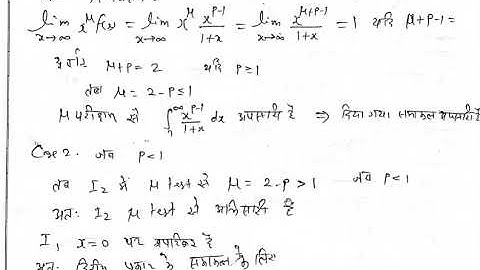 lim x→∞ x^μ f(x) = lim x→∞ x^μ x^(p-1)/(1+x) = lim x→∞ x^(μ+p-1)/(1+x) = 1 यदि μ+p-1=
अर्थात μ+p = 2 यदि p ≥ 1
तब μ = 2-p ≤ 1
μ परीक्षण से ∫ ∞ x^(p-1)/(1+x) dx अपसारी है ⇒ दिया गया समाकल अपसारी है
Case 2. जब p < 1
तब I₂ में μ test से μ = 2-p > 1 जब p < 1
अतः I₂ μ test से अभिसारी है
I₁ x=0 पर है
अतः द्वितीय प्रकार के समाकल के लिए